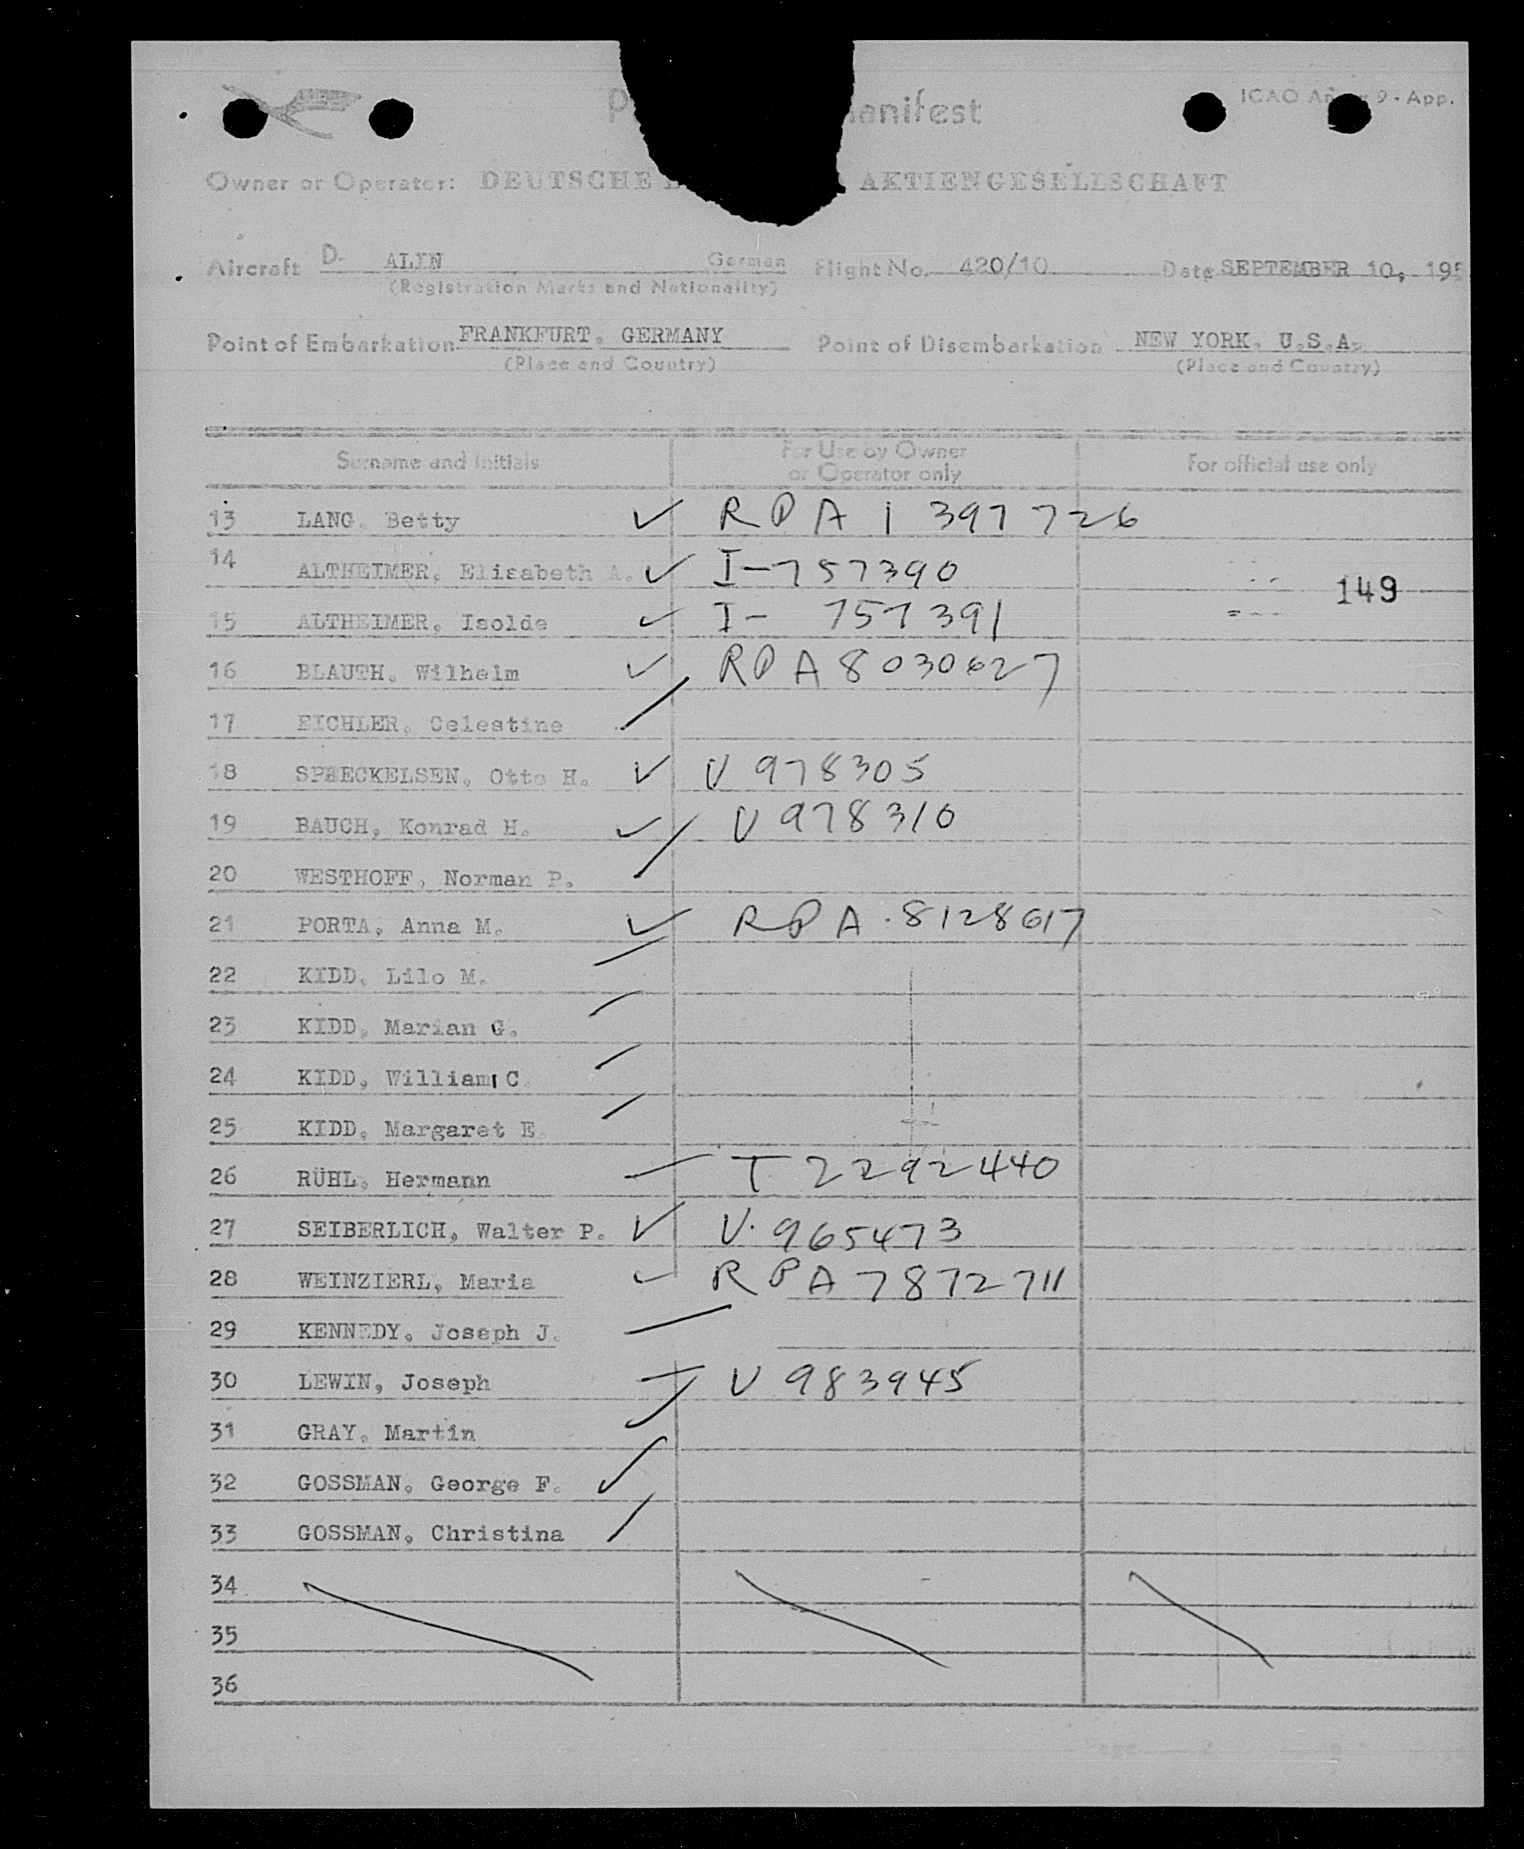 anifest
ICAO 9 - App.
Owner or Operator: DEUTSCHE AKTIENGESELLSCHAFT
Aircraft D- ALIN German Flight No. 420/10 Date SEPTEMBER 10, 195
(Registration Marks and Nationality)
Point of Embarkation FRANKFURT, GERMANY Point of Disembarkation NEW YORK, U.S.A.
(Place and Country) (Place and Country)
Surname and Initials For Use by Owner or Operator only For official use only
13 LANG, Betty RPA 1 397726
14 ALTHEIMER, Elisabeth A. I-757390
149
15 ALTHEIMER, Isolde I- 757391
16 BLAUTH, Wilhelm RPA 8030627
17 EICHLER, Celestine
18 SPRECKELSEN, Otto H. V 978305
19 BAUCH, Konrad H. V 978310
20 WESTHOFF, Norman P.
21 PORTA, Anna M. RPA 8128617
22 KIDD, Lilo M.
23 KIDD, Marian G.
24 KIDD, William C.
25 KIDD, Margaret E.
26 RÜHL, Hermann T 2292440
27 SEIBERLICH, Walter P. V. 965473
28 WEINZIERL, Maria RPA 7872711
29 KENNEDY, Joseph J.
30 LEWIN, Joseph V 983945
31 GRAY, Martin
32 GOSSMAN, George F.
33 GOSSMAN, Christina
34
35
36